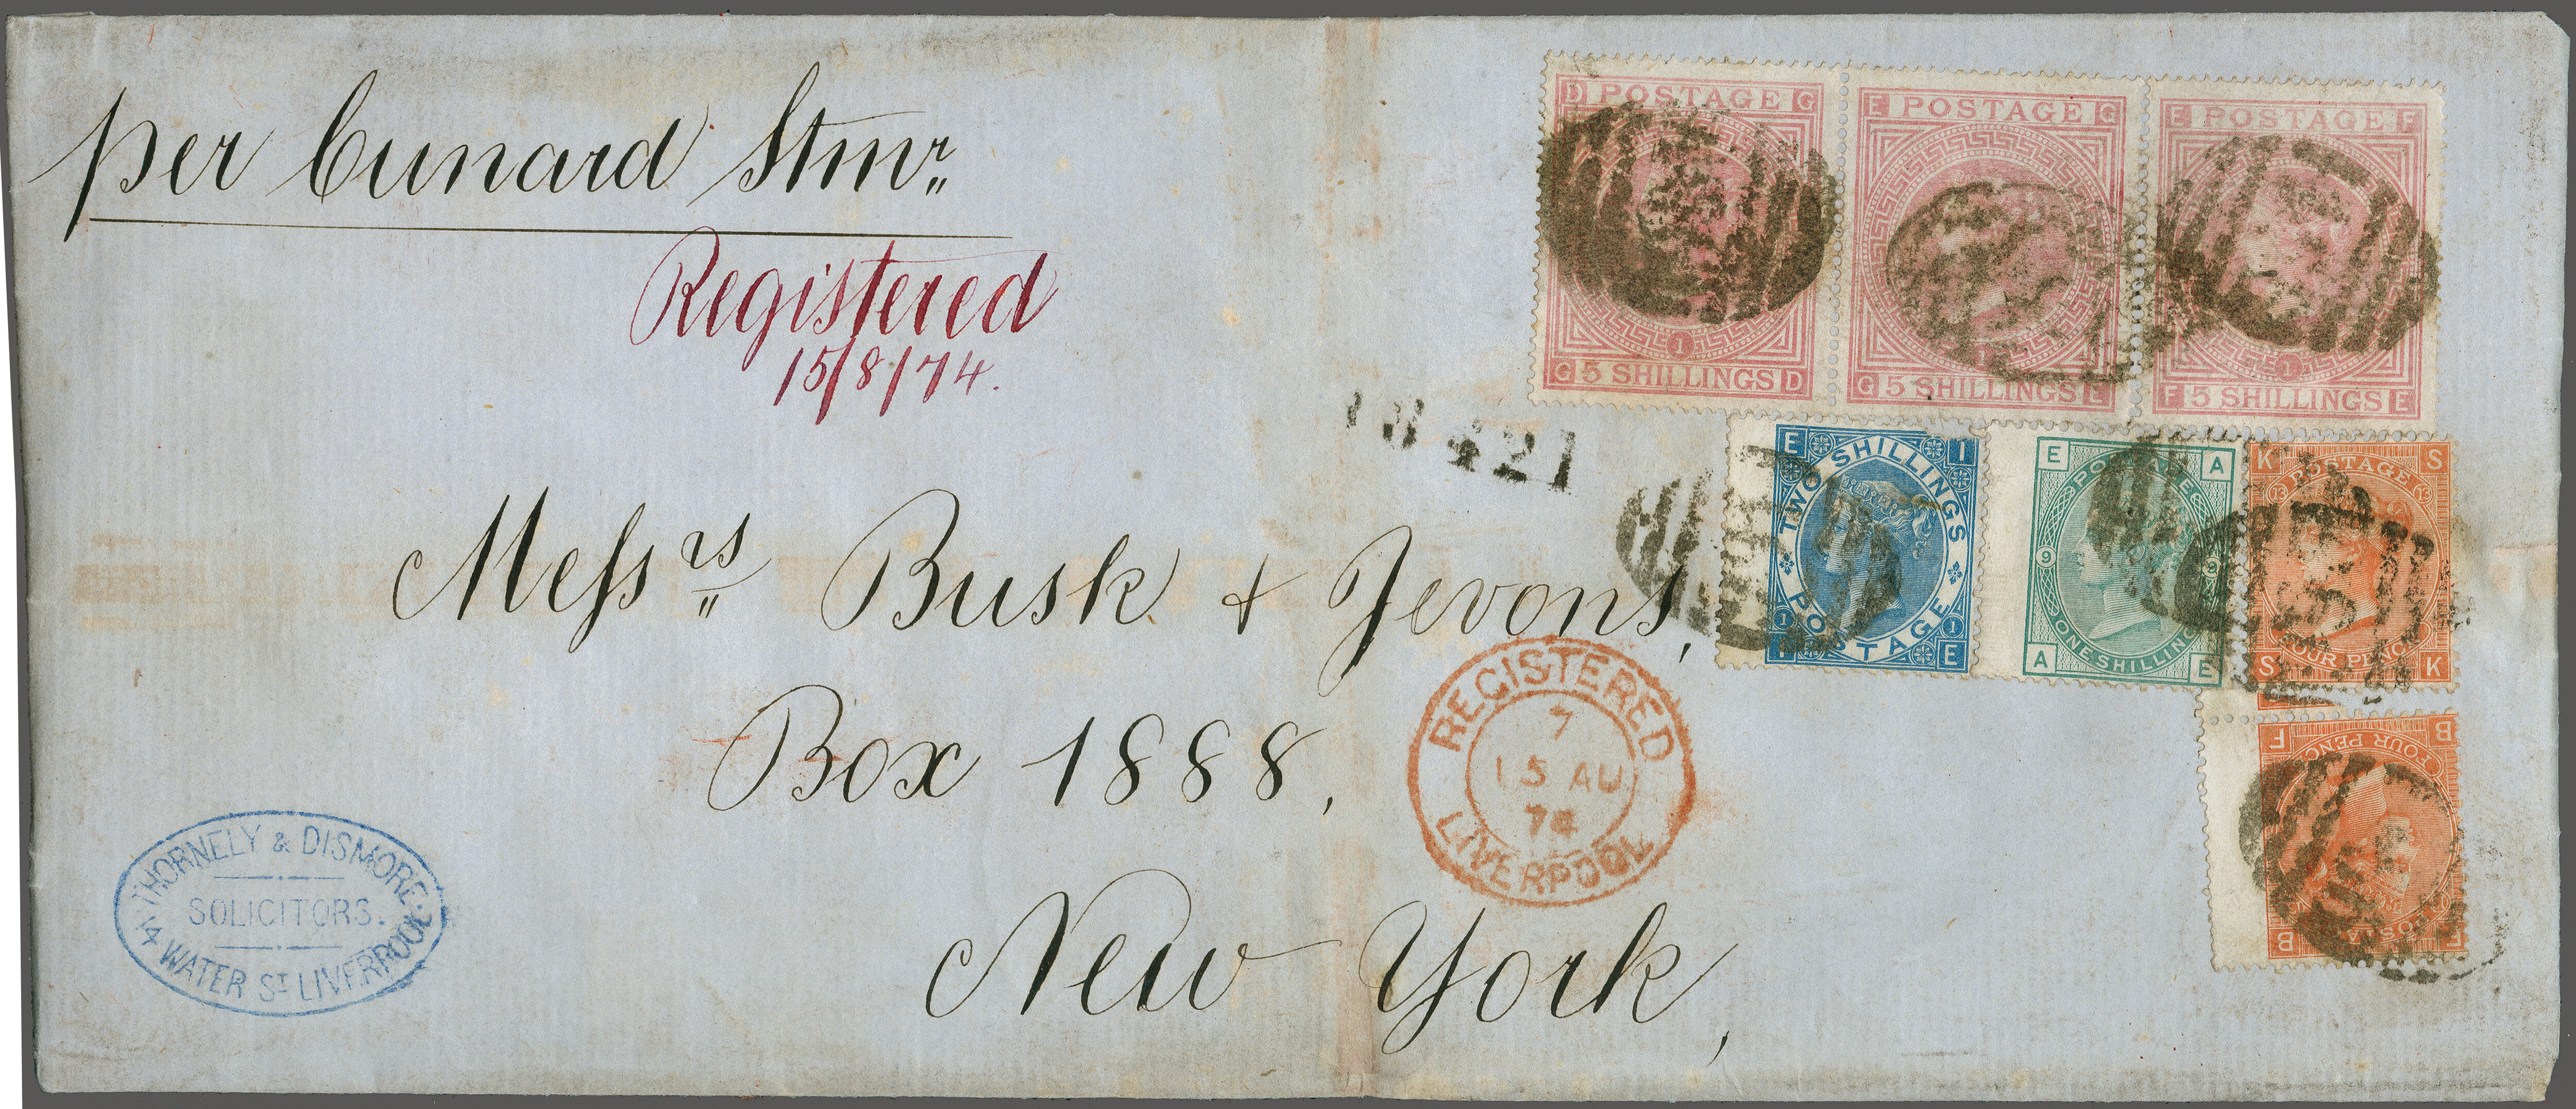 per Cunard Stmr
Registered
15/8/74.
Messrs Busk & Jevons,
Box 1888,
New York,
THORNELY & DISMORE.
SOLICITORS.
14 WATER ST LIVERPOOL
REGISTERED
7
15 AU
74
LIVERPOOL
421
D POSTAGE G
1
G 5 SHILLINGS D
E POSTAGE G
G 5 SHILLINGS E
E POSTAGE F
1
F 5 SHILLINGS E
E I
TWO SHILLINGS
POSTAGE
1 1
E
E A
POSTAGE
9 9
ONE SHILLING
A E
K S
POSTAGE
13 13
FOUR PENCE
S K
B F
FOUR PENCE
POSTAGE
F B